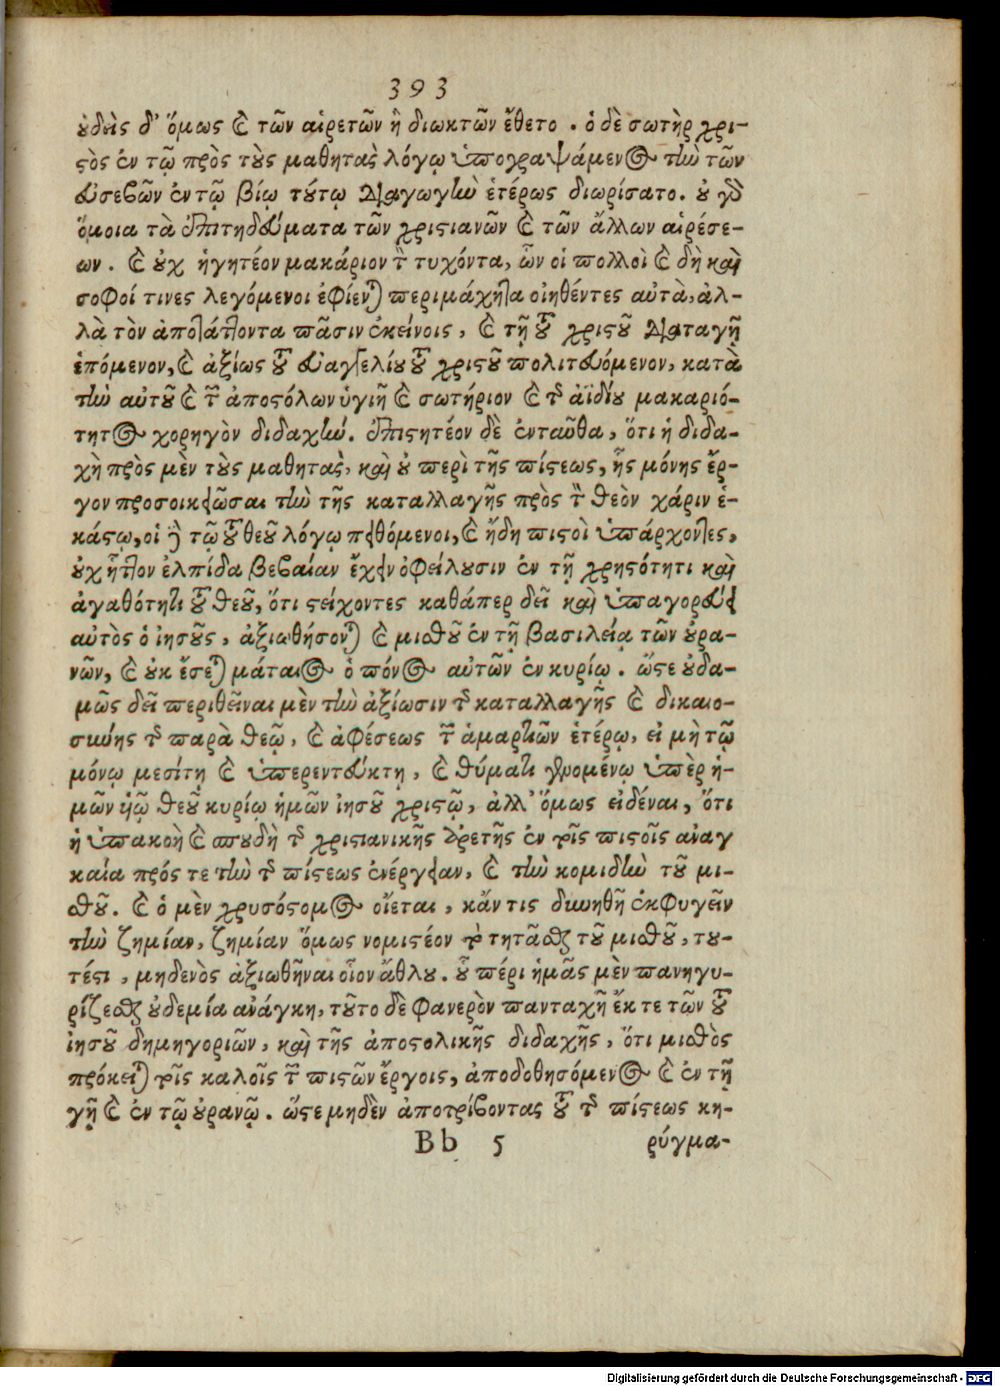 393
οὐδεὶς δ' ὅμως καὶ τῶν αἱρετῶν ἢ διωκτῶν ἔθετο. ὁ δὲ σωτὴρ χρι-
στὸς ἐν τῷ πρὸς τοὺς μαθητὰς λόγῳ ὑπογραψάμενος τὴν τῶν
εὐσεβῶν ἐν τῷ βίῳ τούτῳ διαγωγὴν ἑτέρως διωρίσατο. οὐ γὰρ
ὅμοια τὰ ἐπιτηδεύματα τῶν χριστιανῶν καὶ τῶν ἄλλων αἱρέσε-
ων. καὶ οὐχ ἡγητέον μακάριον τὸν τυχόντα, ὧν οἱ πολλοὶ καὶ δὴ καὶ
σοφοί τινες λεγόμενοι ἐφίενται περιμάχητα οἰηθέντες αὐτὰ, ἀλ-
λὰ τὸν ἀποτάττοντα πᾶσιν ἐκείνοις, καὶ τῇ τοῦ χριστοῦ διαταγῇ
ἑπόμενον, καὶ ἀξίως τοῦ εὐαγγελίου τοῦ χριστοῦ πολιτευόμενον, κατὰ
τὴν αὐτοῦ καὶ τῶν ἀποστόλων ὑγιῆ καὶ σωτήριον καὶ τῆς ἀϊδίου μακαριό-
τητος χορηγὸν διδαχήν. ἐπιστητέον δὲ ἐνταῦθα, ὅτι ἡ διδα-
χὴ πρὸς μὲν τοὺς μαθητὰς, καὶ οὐ περὶ τῆς πίστεως, ἧς μόνης ἔρ-
γον προσοικειῶσαι τὴν τῆς καταλλαγῆς πρὸς τὸν θεὸν χάριν ἑ-
κάστῳ, οἱ γὰρ τῷ τοῦ θεοῦ λόγῳ πειθόμενοι, καὶ ἤδη πιστοὶ ὑπάρχοντες,
οὐχ ἧττον ἐλπίδα βεβαίαν ἔχειν ὀφείλουσιν ἐν τῇ χρηστότητι καὶ
ἀγαθότητι τοῦ θεοῦ, ὅτι στείχοντες καθάπερ δεῖ καὶ ὑπαγορεύει
αὐτὸς ὁ ἰησοῦς, ἀξιωθήσονται καὶ μισθοῦ ἐν τῇ βασιλείᾳ τῶν οὐρα-
νῶν, καὶ οὐκ ἔσεται μάταιος ὁ πόνος αὐτῶν ἐν κυρίῳ. ὥστε οὐδα-
μῶς δεῖ περιθεῖναι μὲν τὴν ἀξίωσιν τῆς καταλλαγῆς καὶ δικαιο-
σύνης τῆς παρὰ θεῷ, καὶ ἀφέσεως τῶν ἁμαρτιῶν ἑτέρῳ, εἰ μὴ τῷ
μόνῳ μεσίτῃ καὶ ὑπερεντεύκτῃ, καὶ θύματι γενομένῳ ὑπὲρ ἡ-
μῶν υἱῷ θεοῦ κυρίῳ ἡμῶν ἰησοῦ χριστῷ, ἀλλ' ὅμως εἰδέναι, ὅτι
ἡ ὑπακοὴ καὶ σπουδὴ τῆς χριστιανικῆς ἀρετῆς ἐν τοῖς πιστοῖς ἀναγ
καία πρός τε τὴν τῆς πίστεως ἐνέργειαν, καὶ τὴν κομιδὴν τοῦ μι-
σθοῦ. καὶ ὁ μὲν χρυσόστομος οἴεται, κἄν τις δυνηθῇ ἐκφυγεῖν
τὴν ζημίαν, ζημίαν ὅμως νομιστέον τὸ τητᾶσθαι τοῦ μισθοῦ, του-
τέστι, μηδενὸς ἀξιωθῆναι οἷον ἄθλου. οὗ πέρι ἡμᾶς μὲν πανηγυ-
ρίζεσθαι οὐδεμία ἀνάγκη, τοῦτο δὲ φανερὸν πανταχῆ ἔκ τε τῶν τοῦ
ἰησοῦ δημηγοριῶν, καὶ τῆς ἀποστολικῆς διδαχῆς, ὅτι μισθὸς
πρόκειται τοῖς καλοῖς τῶν πιστῶν ἔργοις, ἀποδοθησόμενος καὶ ἐν τῇ
γῇ καὶ ἐν τῷ οὐρανῷ. ὥστε μηδὲν ἀποτρίβοντας τοῦ τῆς πίστεως κη-
Bb 5 ρύγμα-
Digitalisierung gefördert durch die Deutsche Forschungsgemeinschaft - DFG